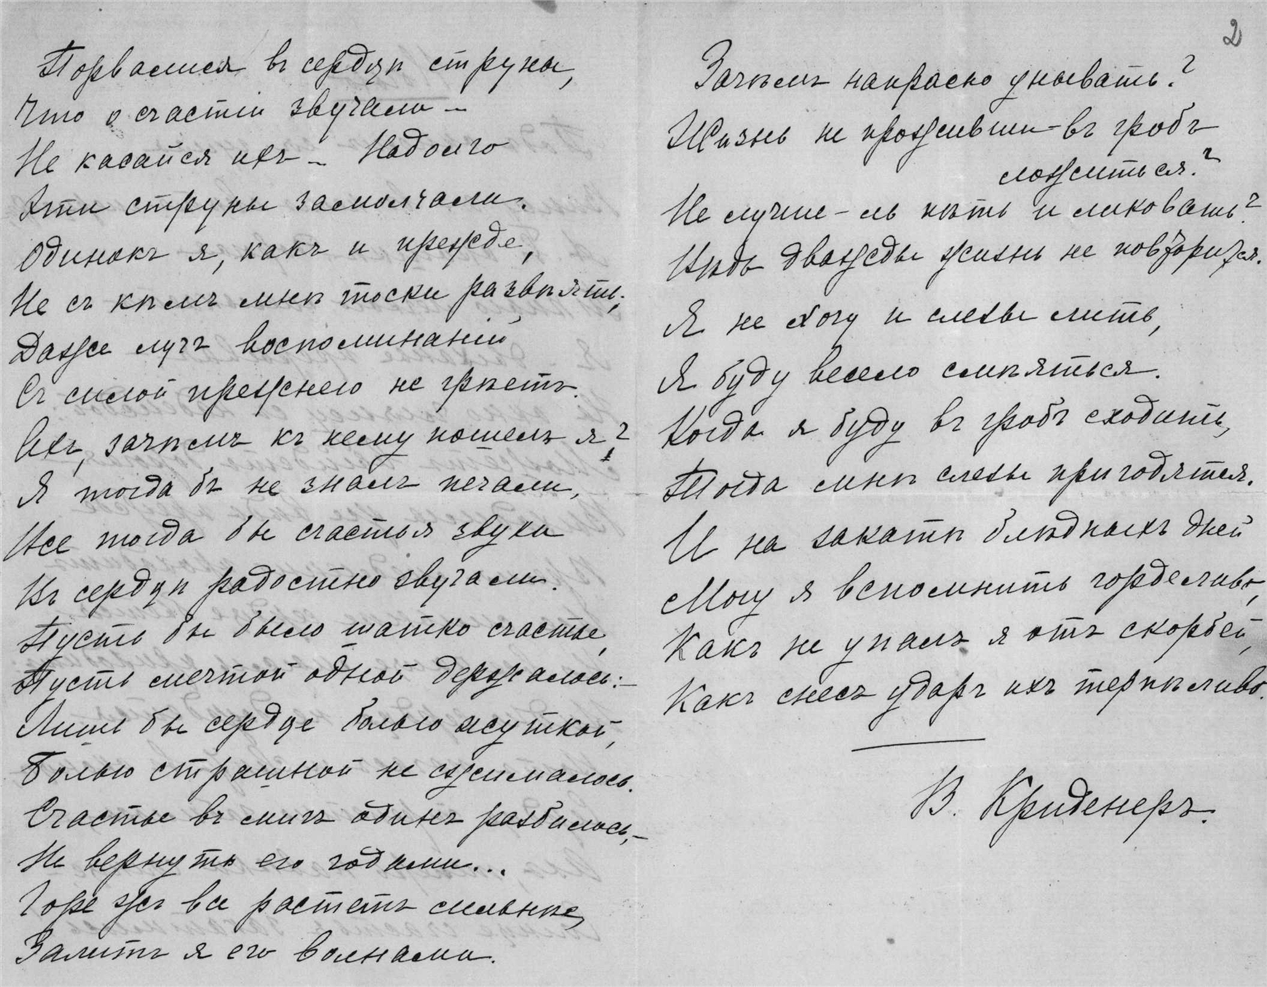 Порвалися въ сердцѣ струны,
Что о счастіи звучали –
Не касайся ихъ – Надолго
Эти струны замолчали.
Одинокъ я, какъ и прежде,
Не съ кѣмъ мнѣ тоски развѣять;
Даже лучъ воспоминаній
Съ силой прежнего не грѣетъ.
Ахъ, зачѣмъ къ нему пошелъ я?
Я тогда бъ не зналъ печали,
Все тогда бы счастья звуки
Въ сердцѣ радостно звучали.
Пусть бы было шатко счастье,
Пусть мечтой одной держалось: –
Лишь бы сердце болью жуткой,
Болью страшной не сжималось.
Счастье въ мигъ одинъ разбилось, –
Не вернуть его годами...
Горе жъ все растетъ сильнѣе,
Залитъ я его волнами.
2
Зачѣмъ напрасно унывать?
Жизнь не проживши – въ гробъ
ложиться?
Не лучше-ль пѣть и ликовать?
Вѣдь дважды жизнь не повторится.
Я не хочу и слезы лить,
Я буду весело смѣяться.
Когда я буду въ гробъ сходить,
Тогда мнѣ слезы пригодятся.
И на закатѣ блѣдныхъ дней
Могу я вспомнить горделиво,
Какъ не упалъ я отъ скорбей,
Какъ снесъ ударъ ихъ терпѣливо.
В. Криденеръ.